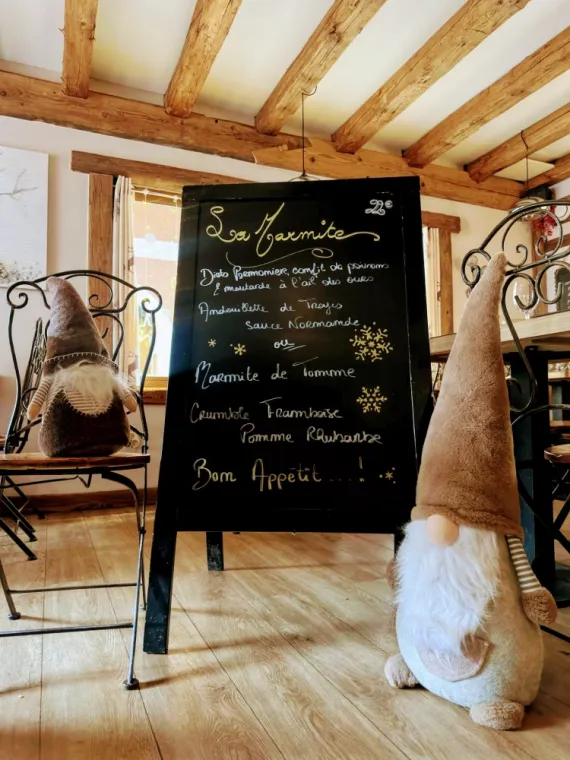 22€
La Marmite
Diots Parmoniere, confit de poivrons
& moutarde à l'ail des ours
Andouillette de Troyes
Sauce Normande
ou
Marmite de Tomme
Crumble Framboise
Pomme Rhubarbe
Bon Appétit ... !